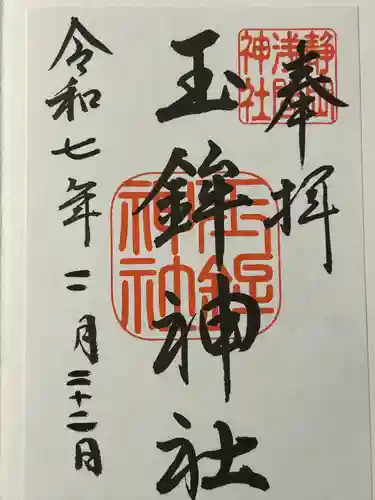 奉拝
静岡浅間神社
玉鉾神社
玉鉾神社
令和七年二月二十二日